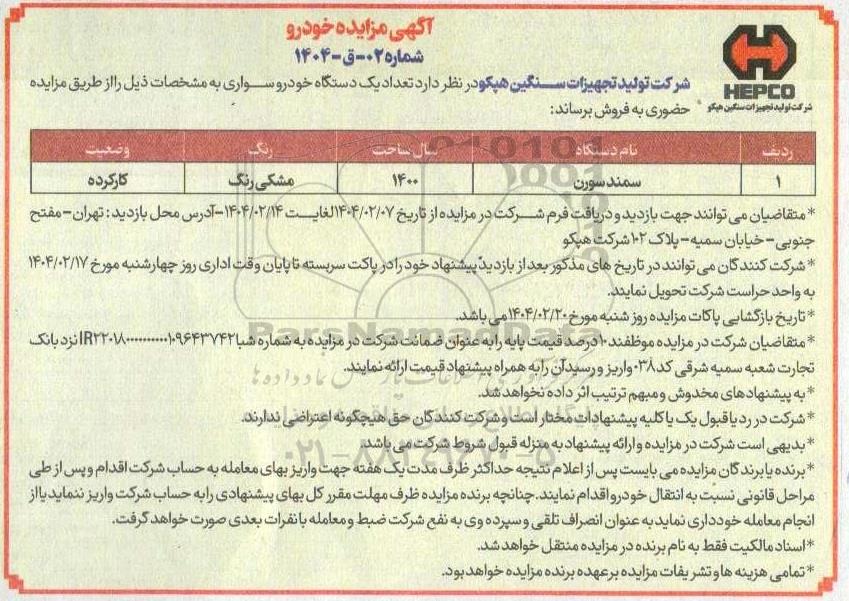 آگهی مزایده خودرو
شماره ۰۲-ق-۱۴۰۴
HEPCO
شرکت تولید تجهیزات سنگین هپکو
شرکت تولید تجهیزات سنگین هپکو در نظر دارد تعداد یک دستگاه خودرو سواری به مشخصات ذیل را از طریق مزایده
حضوری به فروش برساند:
ردیف نام دستگاه سال ساخت رنگ وضعیت
۱ سمند سورن ۱۴۰۰ مشکی رنگ کارکرده
* متقاضیان می توانند جهت بازدید و دریافت فرم شرکت در مزایده از تاریخ ۱۴۰۴/۰۲/۰۷ لغایت ۱۴۰۴/۰۲/۱۴-آدرس محل بازدید: تهران- مفتح
جنوبی- خیابان سمیه- پلاک ۱۰۲ شرکت هپکو
* شرکت کنندگان می توانند در تاریخ های مذکور بعد از بازدید پیشنهاد خود را در پاکت سربسته تا پایان وقت اداری روز چهارشنبه مورخ ۱۴۰۴/۰۲/۱۷
به واحد حراست شرکت تحویل نمایند.
* تاریخ بازگشایی پاکات مزایده روز شنبه مورخ ۱۴۰۴/۰۲/۲۰ می باشد.
ParsNamadData
* متقاضیان شرکت در مزایده موظفند ۱۰ درصد قیمت پایه را به عنوان ضمانت شرکت در مزایده به شماره شبا نزد بانک
تجارت شعبه سمیه شرقی کد ۰۳۸ واریز و رسید آن را به همراه پیشنهاد قیمت ارائه نمایند.
* به پیشنهادهای مخدوش و مبهم ترتیب اثر داده نخواهد شد.
* شرکت در رد یا قبول یک یا کلیه پیشنهادات مختار است و شرکت کنندگان حق هیچگونه اعتراضی ندارند.
* بدیهی است شرکت در مزایده و ارائه پیشنهاد به منزله قبول شروط شرکت می باشد.
۰۲۱-۸۸۳۴۹۶۷۰-۵
* برنده یا برندگان مزایده می بایست پس از اعلام نتیجه حداکثر ظرف مدت یک هفته جهت واریز بهای معامله به حساب شرکت اقدام و پس از طی
مراحل قانونی نسبت به انتقال خودرو اقدام نمایند. چنانچه برنده مزایده ظرف مهلت مقرر کل بهای پیشنهادی را به حساب شرکت واریز ننماید یا از
انجام معامله خودداری نماید به عنوان انصراف تلقی و سپرده وی به نفع شرکت ضبط و معامله با نفرات بعدی صورت خواهد گرفت.
* اسناد مالکیت فقط به نام برنده در مزایده منتقل خواهد شد.
* تمامی هزینه ها و تشریفات مزایده بر عهده برنده مزایده خواهد بود.